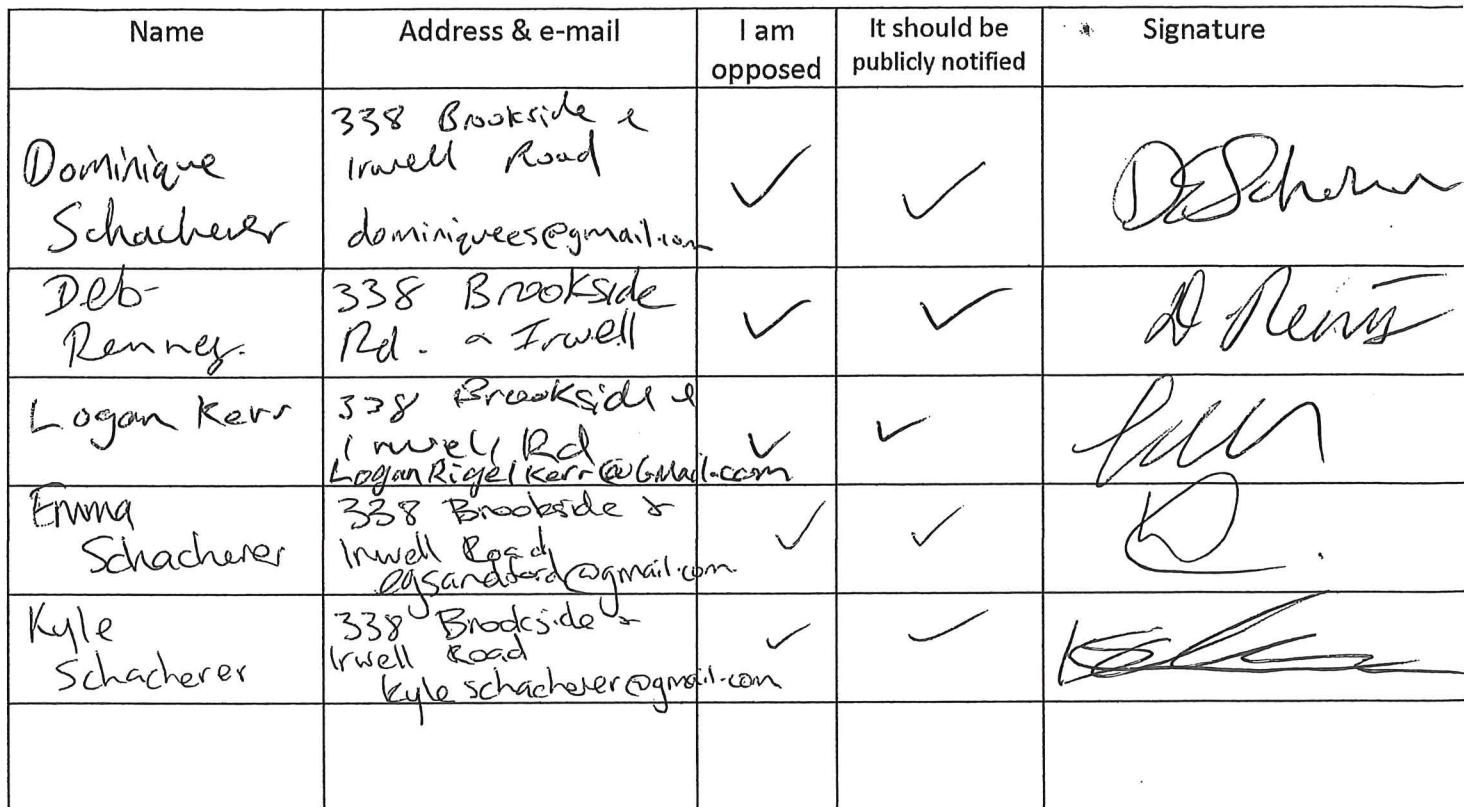 Name
Address & e-mail
I am
opposed
It should be
publicly notified
Signature
Dominique
Schacherer
338 Brookside &
Irwell Road
dominiquees@gmail.com
✓
✓
Deb
Renney.
338 Brookside
Rd. & Irwell
✓
✓
Logan Kerr
338 Brookside &
Irwell Rd
LoganRigelKerr@GMail.com
✓
✓
Emma
Schacherer
338 Brookside &
Irwell Road
egsandford@gmail.com
✓
✓
Kyle
Schacherer
338 Brookside &
Irwell Road
kyleschacherer@gmail.com
✓
✓